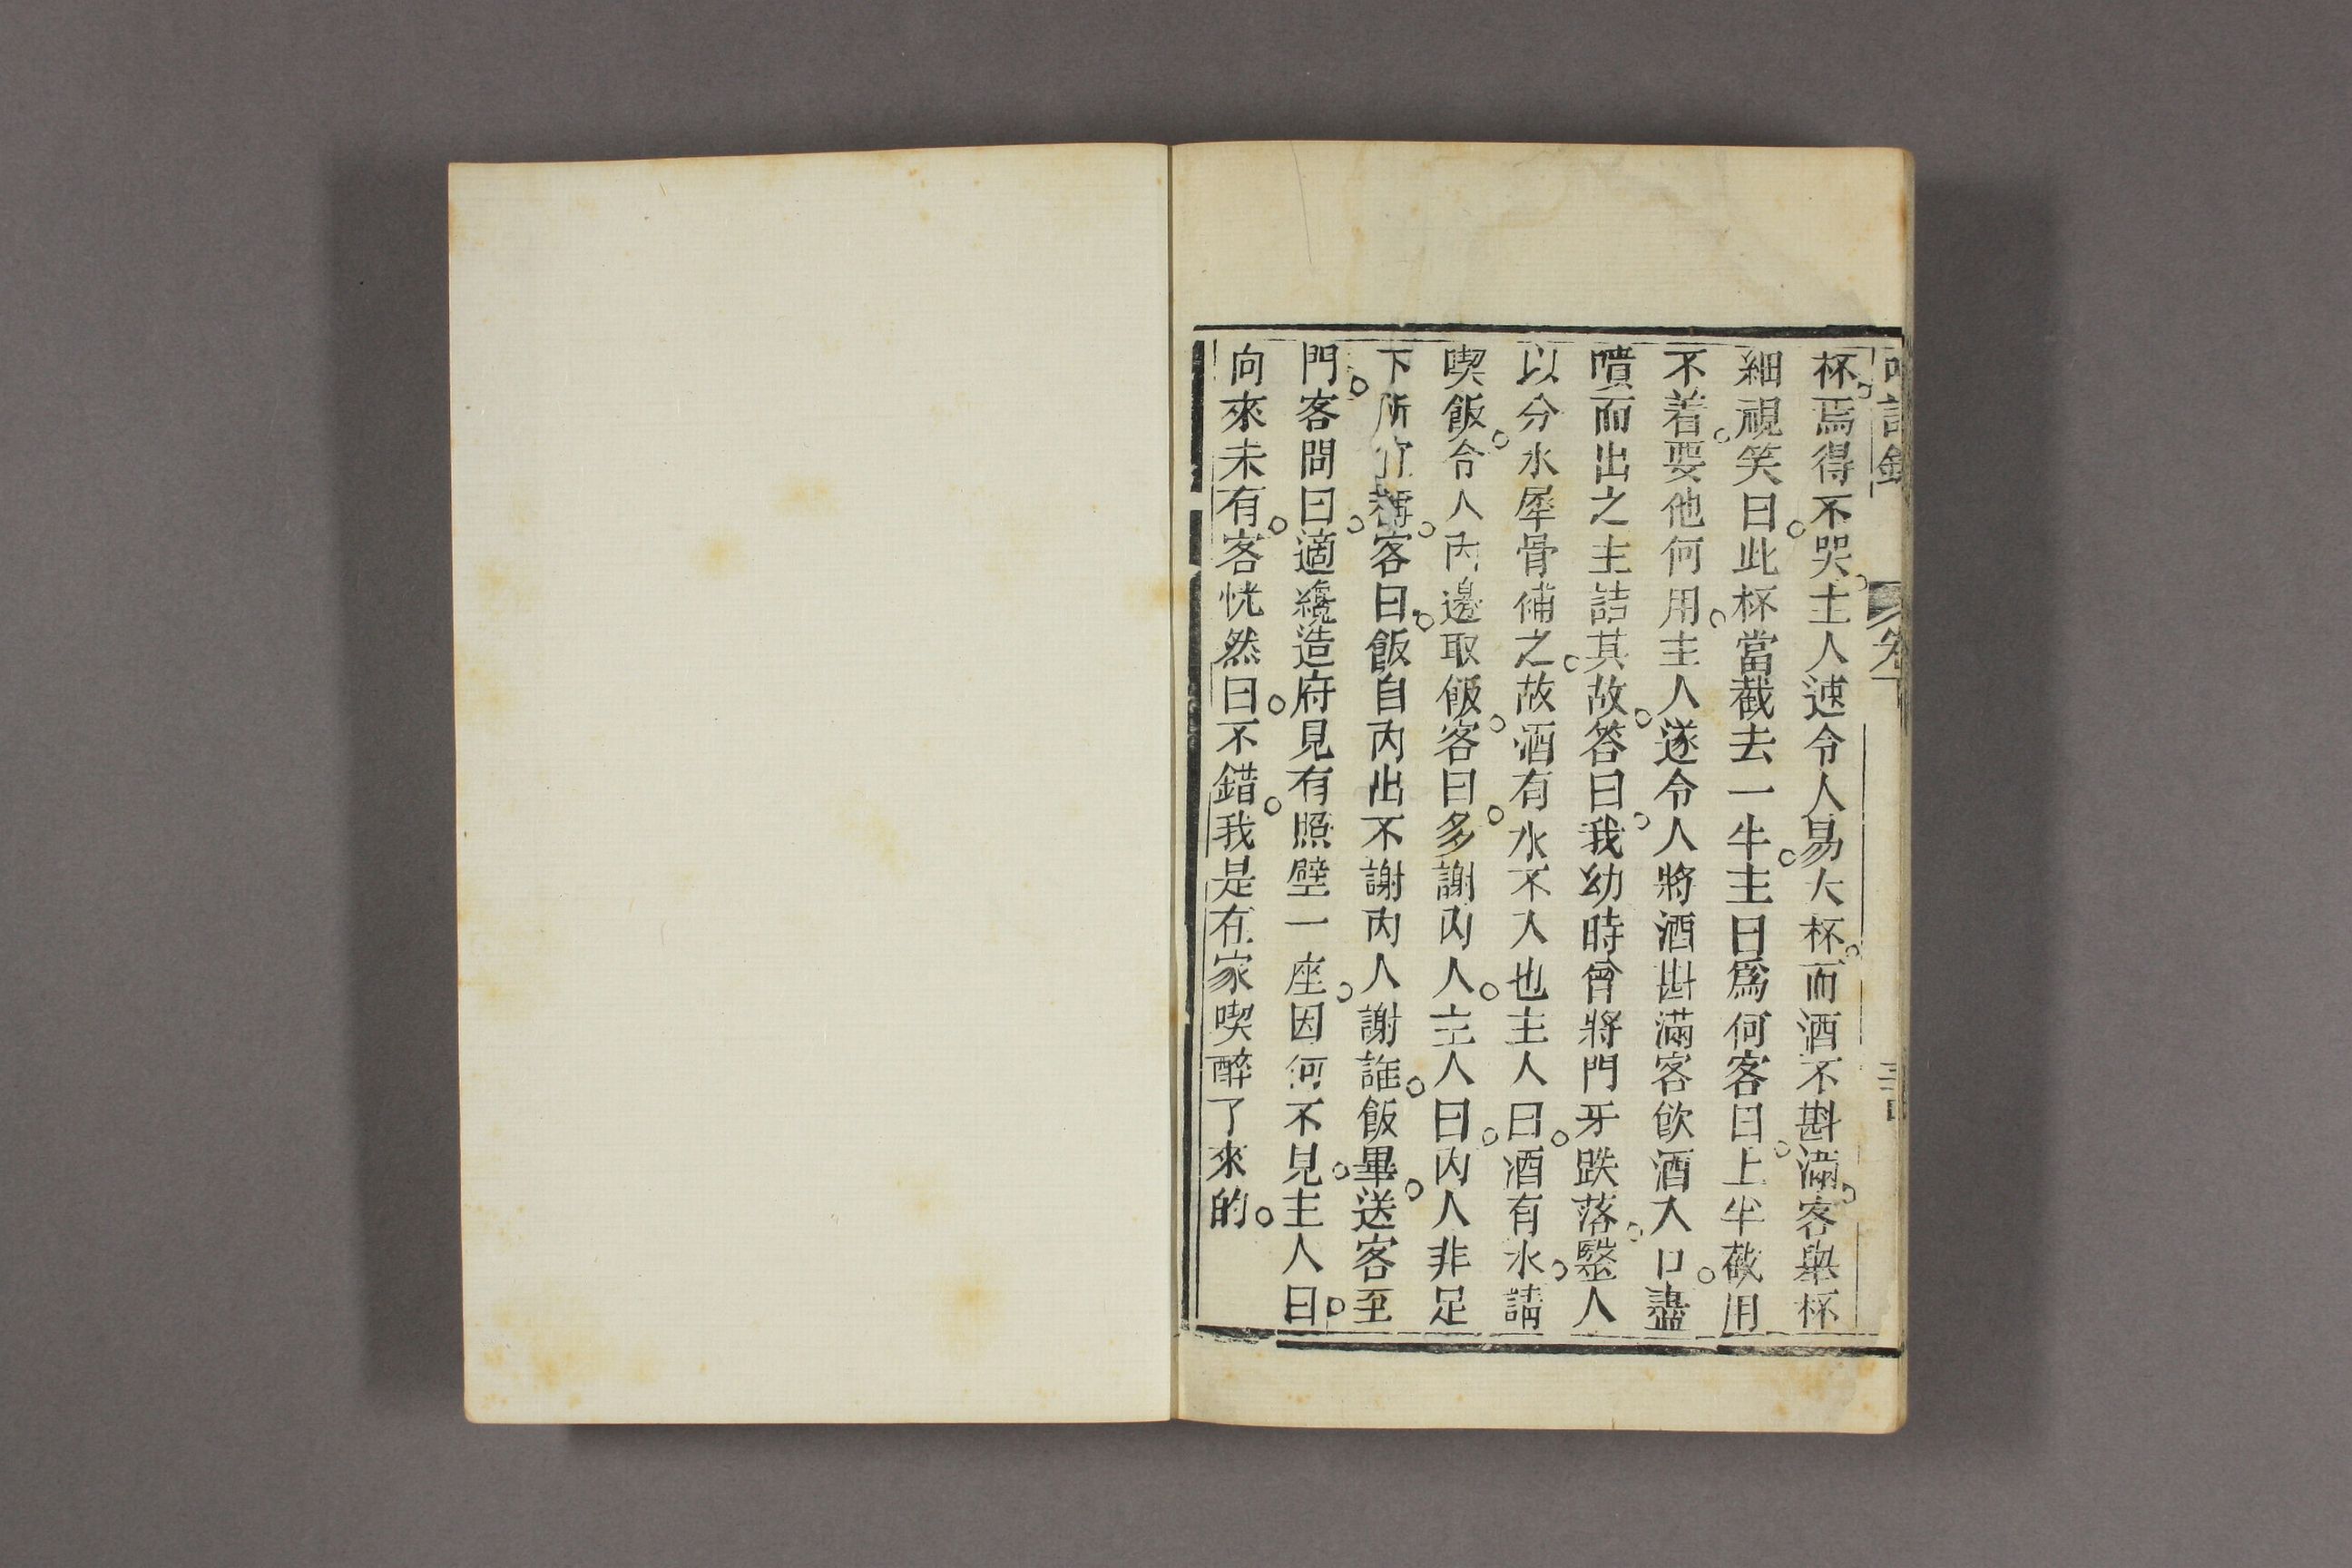 杯。焉得不哭。主人速令人易大杯。而酒不斟滿。客舉杯
細視笑曰。此杯當截去一半。主曰爲何客曰。上半截用
不着。要他何用。主人遂令人將酒斟滿客飲酒入口。盡
噴而出之主詰其故。答曰。我幼時曾將門牙跌落。毉人
以分水犀骨補之。故酒有水不入也主人曰。酒有水。請
喫飯。令人內邊取飯。客曰。多謝內人。主人曰。內人非足
下所宜稱。客曰。飯自內出不謝內人謝誰。飯畢。送客至
門。客問曰。適纔造府見有照壁一座。因何不見。主人曰。
向來未有。客恍然曰。不錯。我是在家喫醉了來的。
卷